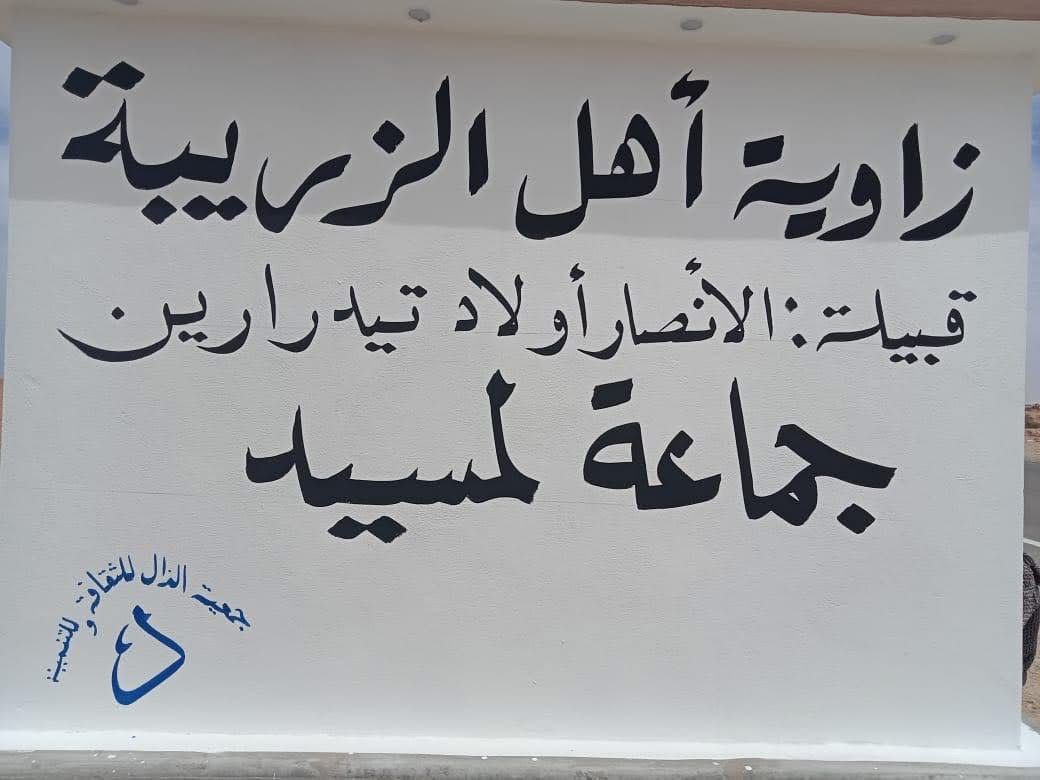 زاوية أهل الزريبة
قبيلة: الأنصار أولاد تيدرارين
جماعة لمسيد
جمعية الدال للثقافة و للتنمية
د